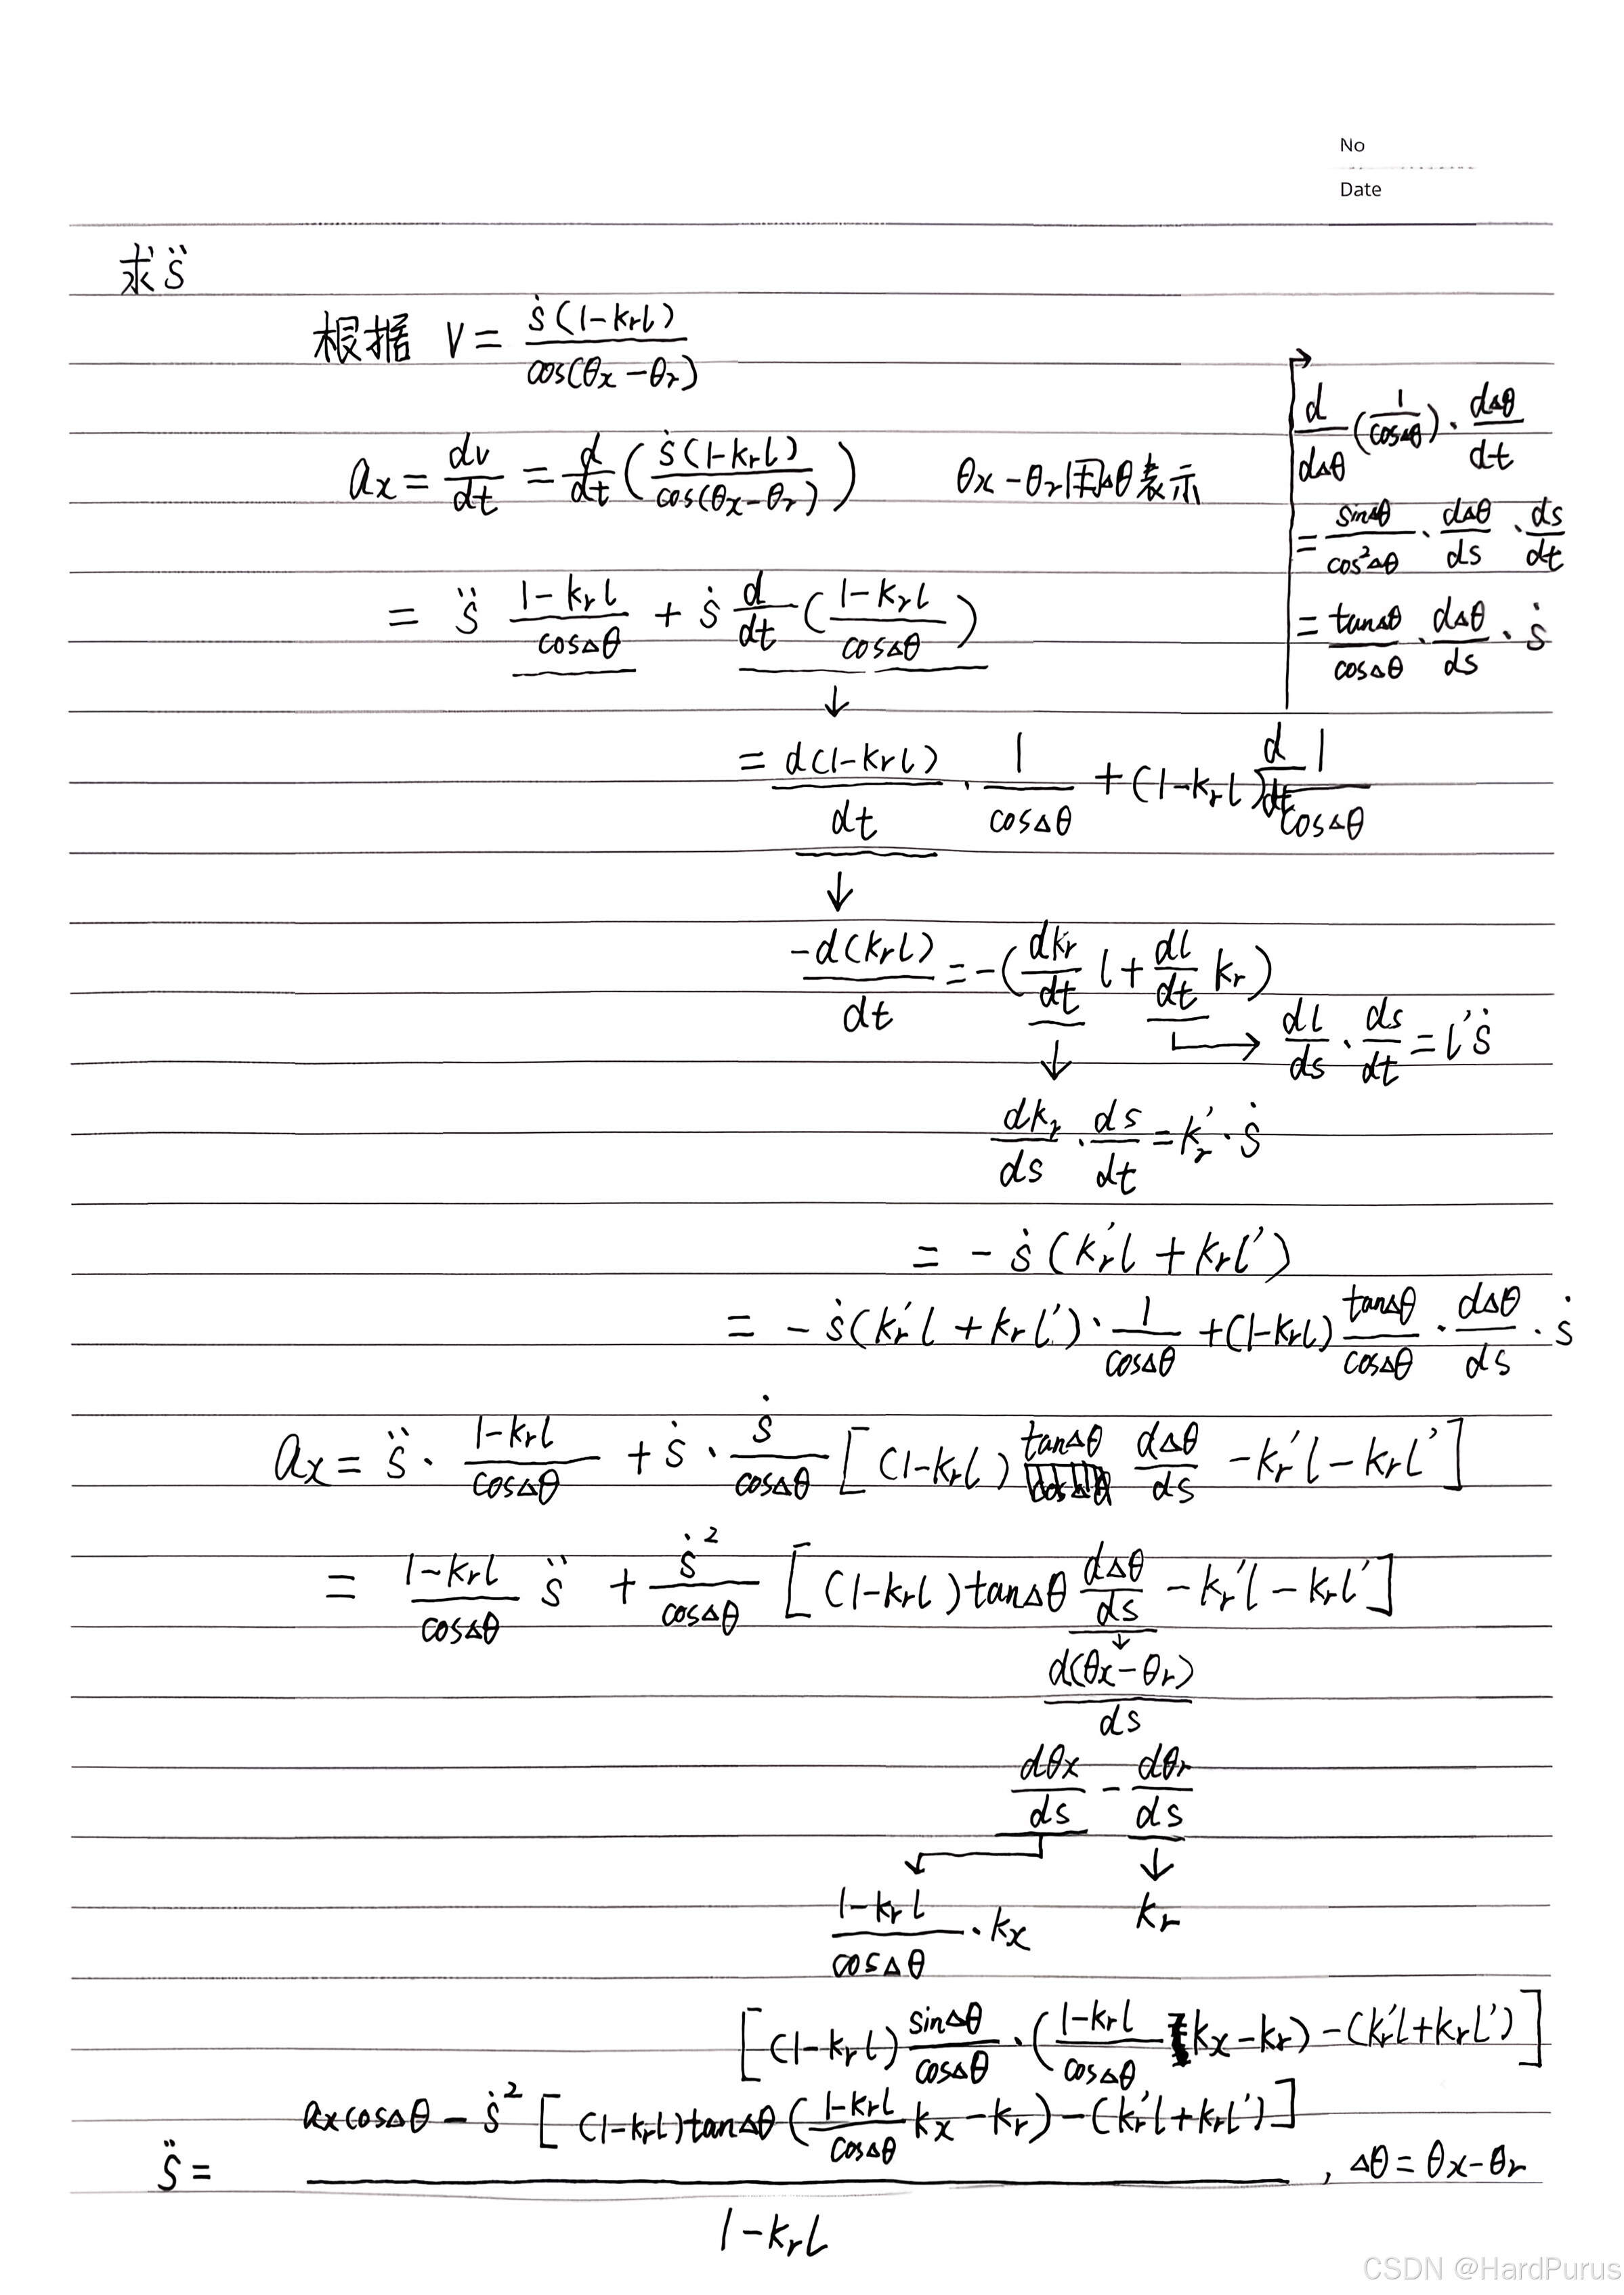 No
Date
求 s̈
根据 V = ṡ(1-krl) / cos(θx-θr)
ax = dv/dt = d/dt ( ṡ(1-krl) / cos(θx-θr) )   θx-θr用Δθ表示
d/dΔθ (1/cosΔθ) · dΔθ/dt
= sinΔθ/cos²Δθ · dΔθ/ds · ds/dt
= tanΔθ/cosΔθ · dΔθ/ds · ṡ
= s̈ (1-krl)/cosΔθ + ṡ d/dt ( (1-krl)/cosΔθ )
↓
= d(1-krl)/dt · 1/cosΔθ + (1-krl) d/dt 1/cosΔθ
↓
-d(krl)/dt = -( dkr/dt l + dl/dt kr )
→ dl/ds · ds/dt = l'ṡ
↓
dkr/ds · ds/dt = kr' · ṡ
= - ṡ (kr'l + krl')
= - ṡ(kr'l + krl') · 1/cosΔθ + (1-krl) tanΔθ/cosΔθ · dΔθ/ds · ṡ
ax = s̈ · (1-krl)/cosΔθ + ṡ · ṡ/cosΔθ [ (1-krl) tanΔθ dΔθ/ds - kr'l - krl' ]
= (1-krl)/cosΔθ s̈ + ṡ²/cosΔθ [ (1-krl) tanΔθ dΔθ/ds - kr'l - krl' ]
↓
d(θx-θr)/ds
dθx/ds - dθr/ds
↓ ↓
(1-krl)/cosΔθ · kx   kr
[ (1-krl) sinΔθ/cosΔθ · ( (1-krl)/cosΔθ kx - kr ) - (kr'l + krl') ]
s̈ = axcosΔθ - ṡ² [ (1-krl)tanΔθ ( (1-krl)/cosΔθ kx - kr ) - (kr'l + krl') ] / 1-krl , Δθ = θx-θr
CSDN @HardPurus